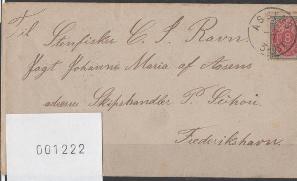 Til
Stenfisker C. S. Ravn.
Jagt Johanne Maria af Assens
adresse Skipshandler P. Schou
Frederikshavn.
8
001222